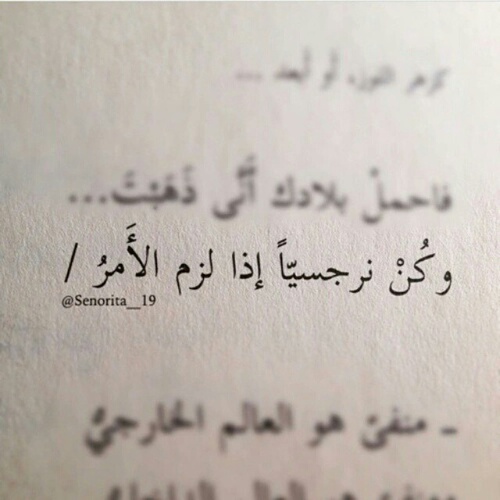 كزهر اللوز، أو أبعد ...
فاحملْ بلادك أَنَّى ذَهَبْتَ...
وكُنْ نرجسيّاً إذا لزم الأَمرُ /
@Senorita__19
- منفىً هو العالم الخارجيُّ